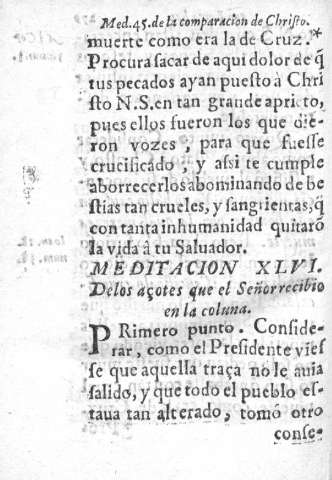 Med.45. de la comparacion de Christo.
muerte como era la de Cruz.*
Procura sacar de aqui dolor de q̃
tus pecados ayan puesto à Chri
sto N.S.en tan grande aprieto,
pues ellos fueron los que die-
ron vozes, para que fuesse
crucificado, y assi te cumple
aborrecerlos abominando de be
stias tan crueles, y sangrientas, q̃
con tanta inhumanidad quitarõ
la vida â tu Saluador.
MEDITACION XLVI.
De los açotes que el Señor recibio
en la coluna.
PRimero punto. Conside-
rar, como el Presidente vies
se que aquella traça no le auia
salido, y que todo el pueblo es-
taua tan alterado, tomó otro
conse-